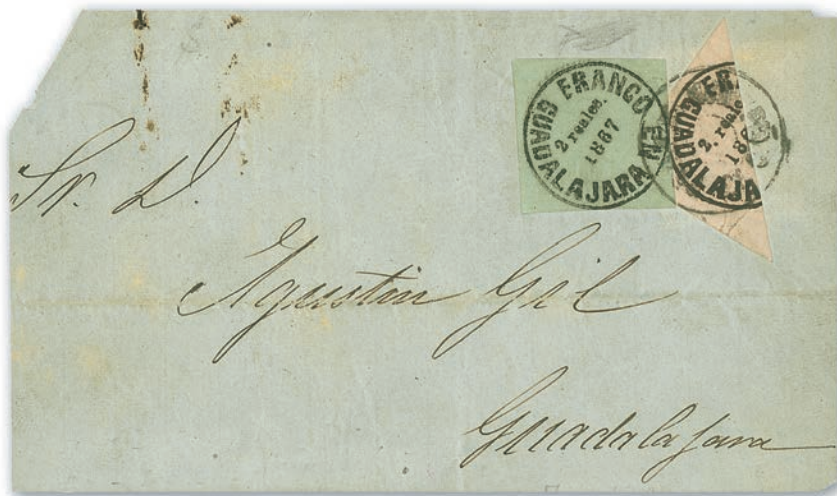 FRANCO EN GUADALAJARA
2 reales.
1867
FR
GUADALAJA
2. reale
18
Sr. D.
Agustin Gil
Guadalajara